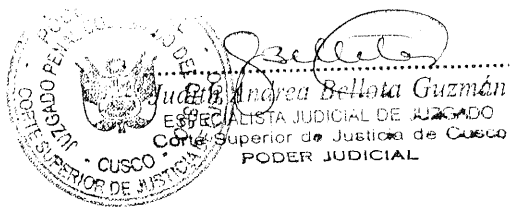 Judith Andrea Bellota Guzmán
ESPECIALISTA JUDICIAL DE JUZGADO
Corte Superior de Justicia de Cusco
PODER JUDICIAL
JUZGADO PE
CUSCO
CORTE SUPERIOR DE JUSTICIA